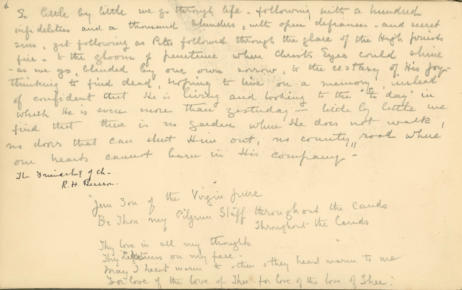 6
So little by little we go through life - following with a hundred
infidelities and a thousand blunders, with open defiances - and secret
sins, yet following as Peter followed through the glare of the High Priest's
fire - to the gloom of penitence where Christ's Eyes could shine
- as we go, blinded by our own sorrow, to the ecstasy of His Joy -
thinking to find dead, hoping to live on a memory instead
of confident that He is living and looking to the "to day" in
which He is even more than yesterday - little by little we
find that there is no garden where He does not walk,
no doors that can shut Him out, no country road where
our hearts cannot burn in His company -
The Friendship of Ch -
R. H. Benson.
Jesu Son of the Virgin pure
Be Thou my Pilgrim Staff throughout the Lands
Throughout the Lands
Thy love in all my thoughts
Thy on my face -
May I heart warm to others & they heart warm to me
For love of the love of Thee for love of the love of Thee -